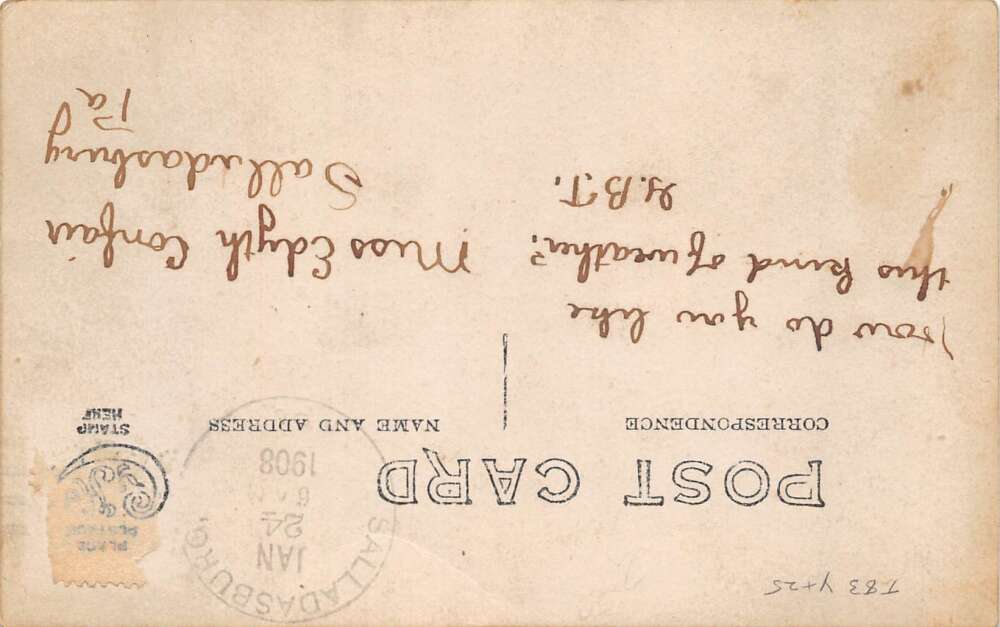 POST CARD
CORRESPONDENCE
NAME AND ADDRESS
PLACE
STAMP
HERE
SALLADASBURG
JAN
24
1908
How do you like
this kind of weather?
G.B.T.
Miss Edyth Confair
Salladasburg
Pa
T83 Y+25